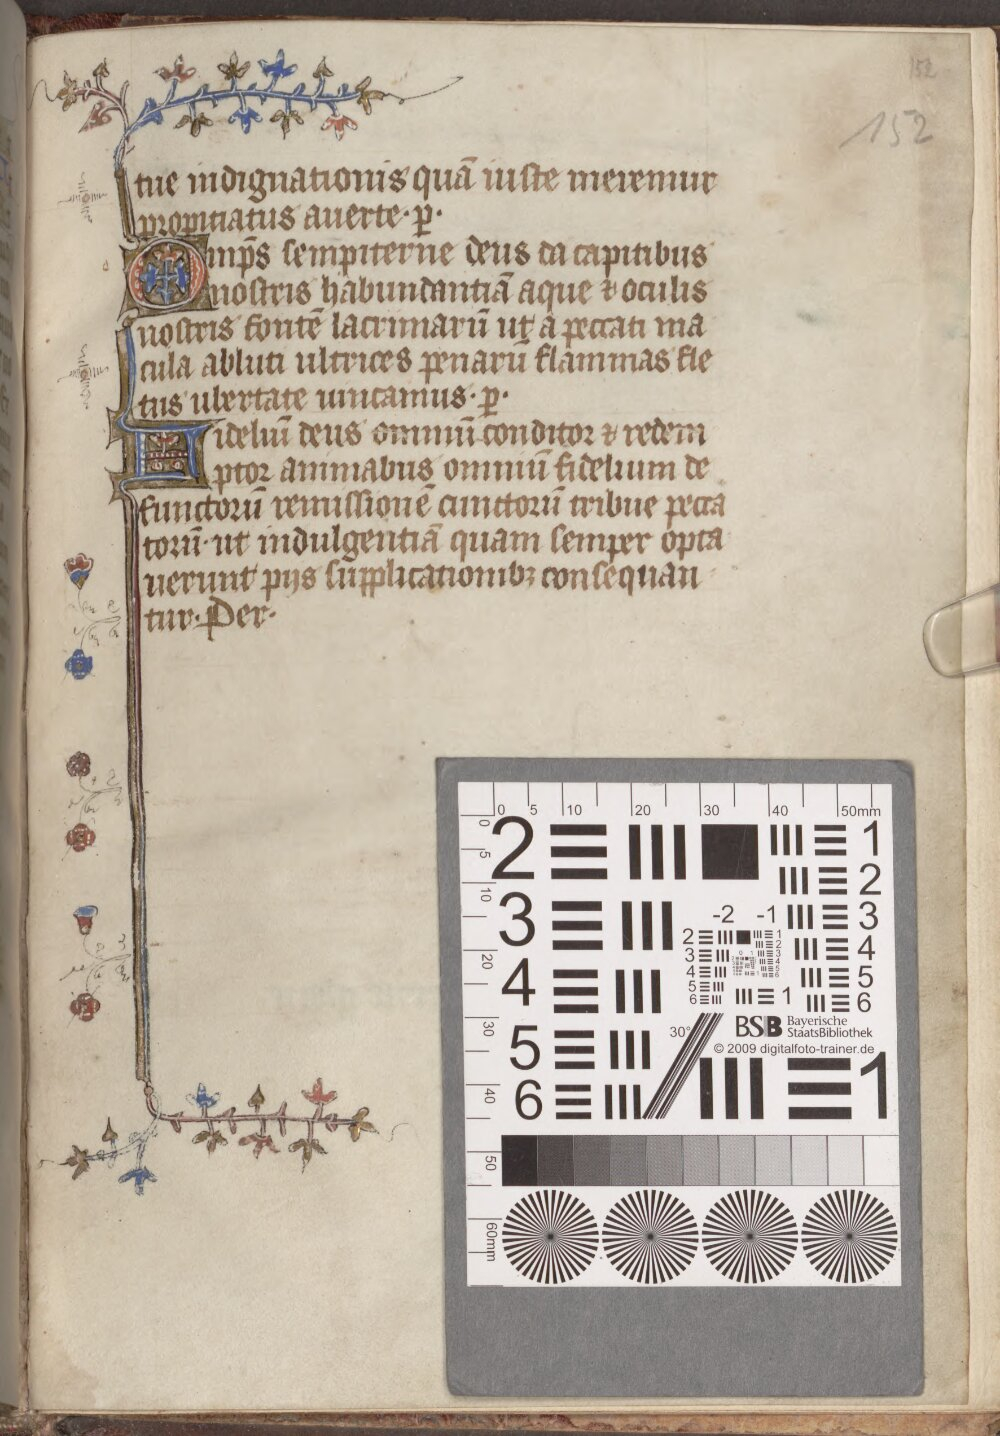 152
152
tue indignationis quā iuste meremur
propitiatus auerte · p̱ ·
Omp̄s sempiterne deus da capitibus
nostris habundantiā aque ⁊ oculis
nostris fontē lacrimarū ut a peccati ma
cula abluti ultrices penarū flammas fle
tus ubertate uincamus · p̱ ·
Fideliū deus omniū conditor ⁊ redem
ptor animabus omniū fidelium de
functorū remissionē cunctorū tribue pecca
torū · ut indulgentiā quam semper opta
uerunt pijs supplicationibꝫ consequan
tur · Per ·
0 5 10 20 30 40 50mm
0 5 10 20 30 40 50 60mm
2 1
2
3 3
-2 -1
4 4
5 5
6 6
2 1
3 2
4 3
5 4
6 5
6
1
30°
BSB Bayerische
StaatsBibliothek
© 2009 digitalfoto-trainer.de
1